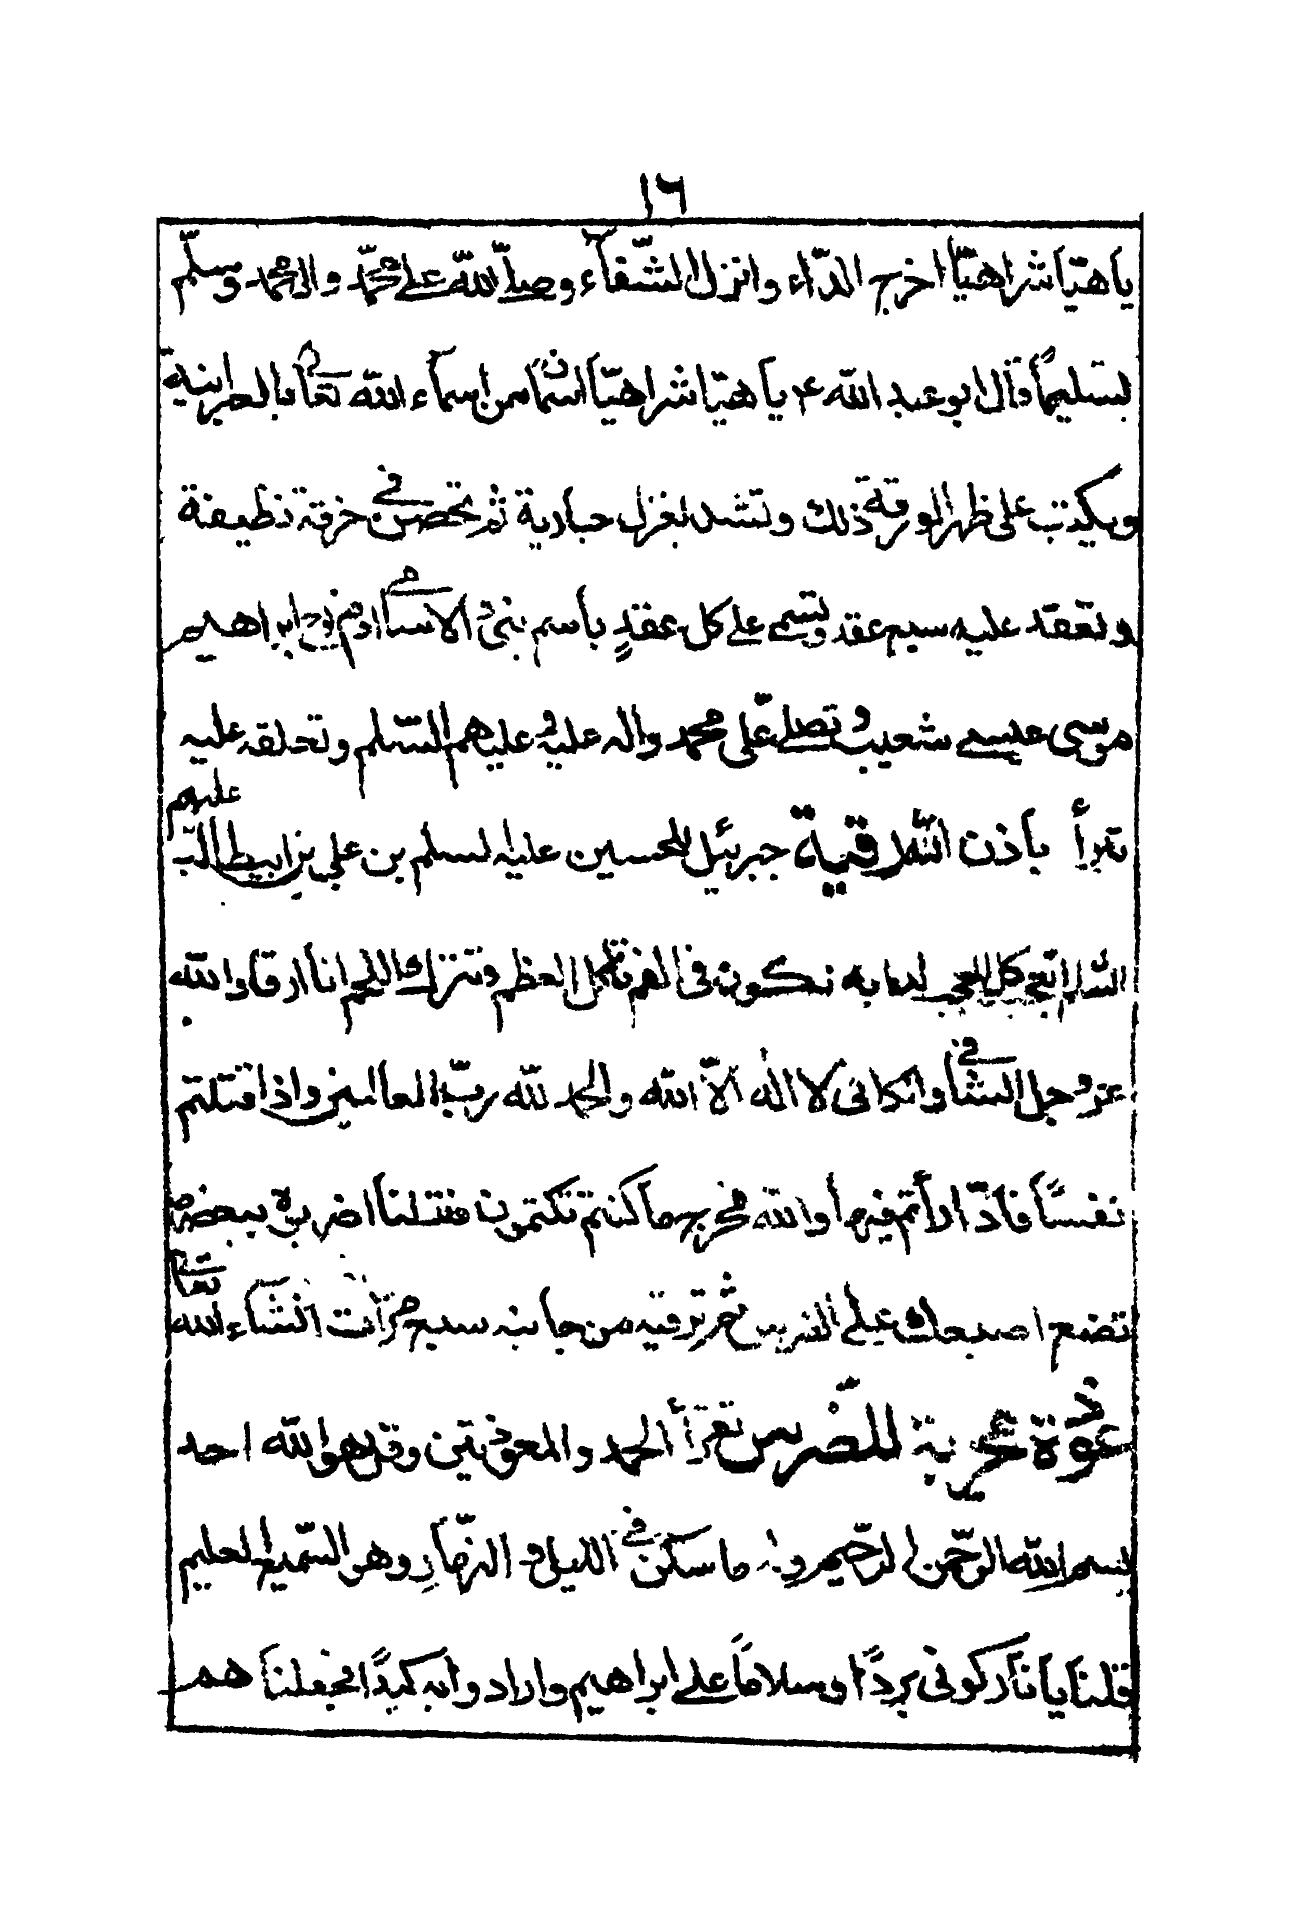 ١٦
يا هيّا شراهيّا اخرج الدّاء وانزل الشّفآء وصلّى اللّه على محمّد وال محمد وسلّم
تسليمًا قال ابو عبد اللّه ع يا هيّا شراهيّا اسمان من اسمآء اللّه تعا بالعبرانية
ويكتب على ظهر الورقة ذلك وتشد بغزل جارية لم تحض فى خرقة نظيفة
وتعقد عليه سبع عقد وتسمى على كل عقد باسم نبىّ الاسامى ادم نوح ابراهيم
موسى عيسى شعيب وتصلى على محمد واله عليه وعليهم السّلم وتعلقه عليه
تبرأ باذن اللّه رقية جبرئيل للحسين عليه السلم بن على بن ابيطالب عليهم
السّلم العجب كل العجب لدابة تكون فى الفم تأكل العظم وتنزك اللحم انا ارقا واللّه
عز وجل الشافى والكافى لا اله الّا اللّه والحمد للّه ربّ العالمين واذ قتلتم
نفسًا فادّارأتم فيها واللّه مخرج ما كنتم تكتمون فقلنا اضربوه ببعضها
تضع اصبعك على الضرس ثم ترقيه من جانبه سبع مرّات انشآء اللّه تعا
عوذة مجربة للضّرس تقرأ الحمد والمعوذتين وقل هو اللّه احد
بسم اللّه الرّحمن الرّحيم وله ما سكن فى الليل والنّهار وهو السّميع العليم
قلنا يا نار كونى بردًا وسلامًا على ابراهيم وارادوا به كيدًا فجعلناهم